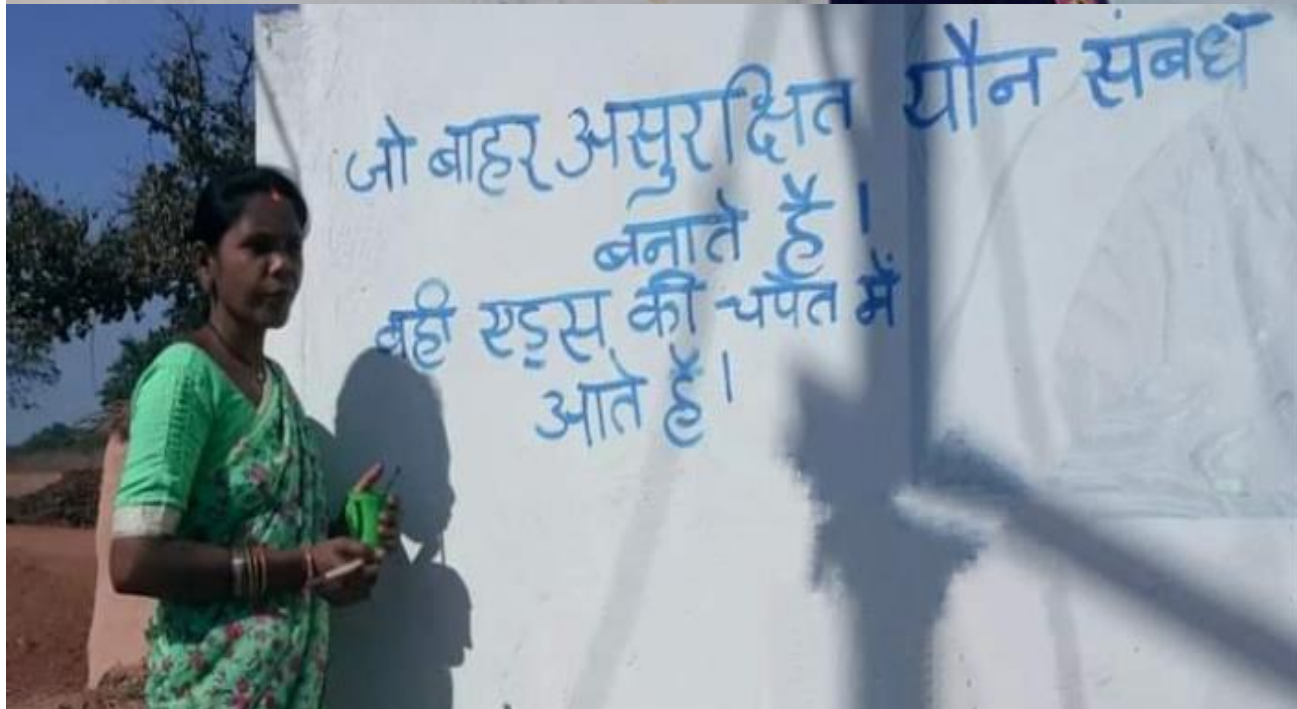 जो बाहर असुरक्षित यौन संबंध
बनाते है।
वही एड्स की चपेत में
आते हैं।